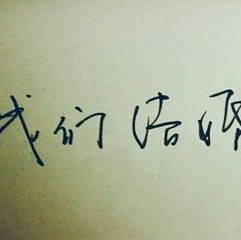 我们结婚